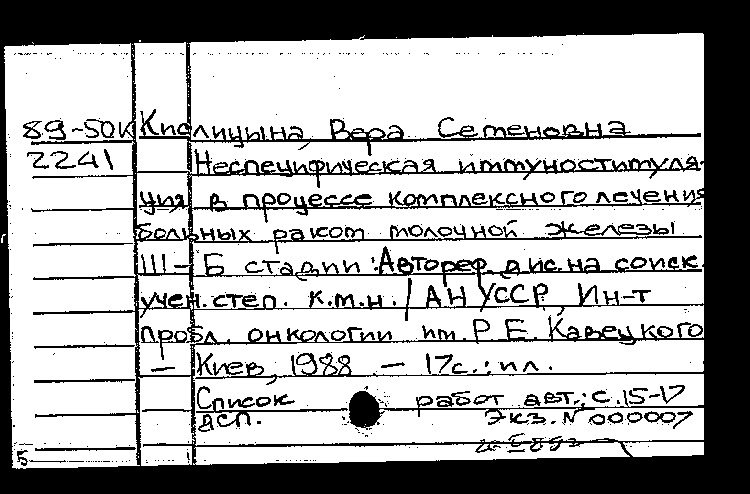 89-50к Кислицына, Вера Семеновна
2241 Неспецифическая иммуностимуля-
ция в процессе комплексного лечения
больных раком молочной железы
III-Б стадии: Автореф. дис. на соиск.
учен. степ. к.м.н. / АН УССР, Ин-т
пробл. онкологии им. Р. Е. Кавецкого
— Киев, 1988 — 17с.: ил.
Список работ авт.: с. 15-17
ДСП. Экз. N 000007
5